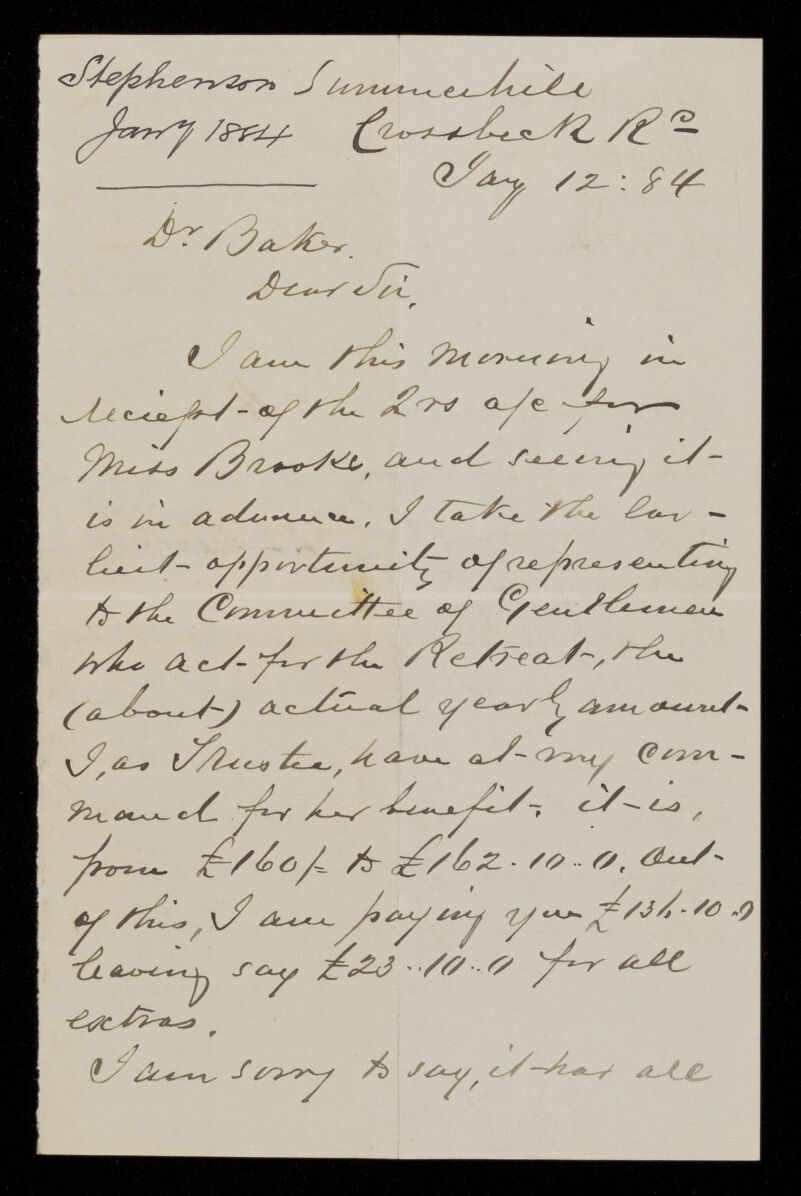 Stephenson Summerhill
Jany 1884 Crossbeck Rd
Jany 12: 84
Dr. Baker.
Dear Sir,
I am this morning in
reciept of the 2rs a/c for
Miss Brooke, and seeing it
is in advance, I take the ear-
liest opportunity of representing
to the Committee of Gentlemen
who act for the Retreat, the
(about) actual yearly amount
I, as Trustee, have at my com-
mand for her benefit, it is,
from £160/= to £162.10..0. Out
of this, I am paying you £136.10..0
leaving say £23..10..0 for all
extras.
I am sorry to say, it has all